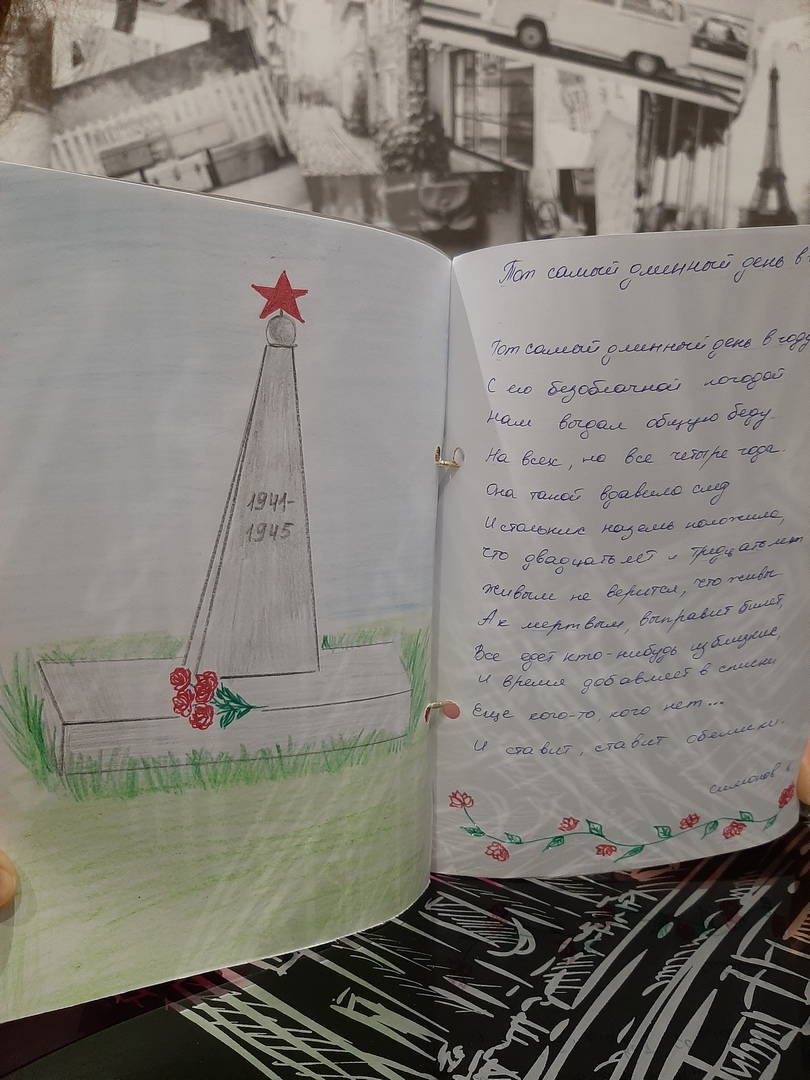 1941-
1945
Тот самый длинный день в
Тот самый длинный день в году
С его безоблачной погодой
Нам выдал общую беду
На всех, на все четыре года.
Она такой вдавила след
И стольких наземь положила,
что двадцать лет и тридцать лет
живым не верится, что живы
А к мертвым, выправив билет,
Все едет кто-нибудь из близких,
И время добавляет в списки
Еще кого-то, кого нет...
И ставит, ставит обелиски.
Симонов К